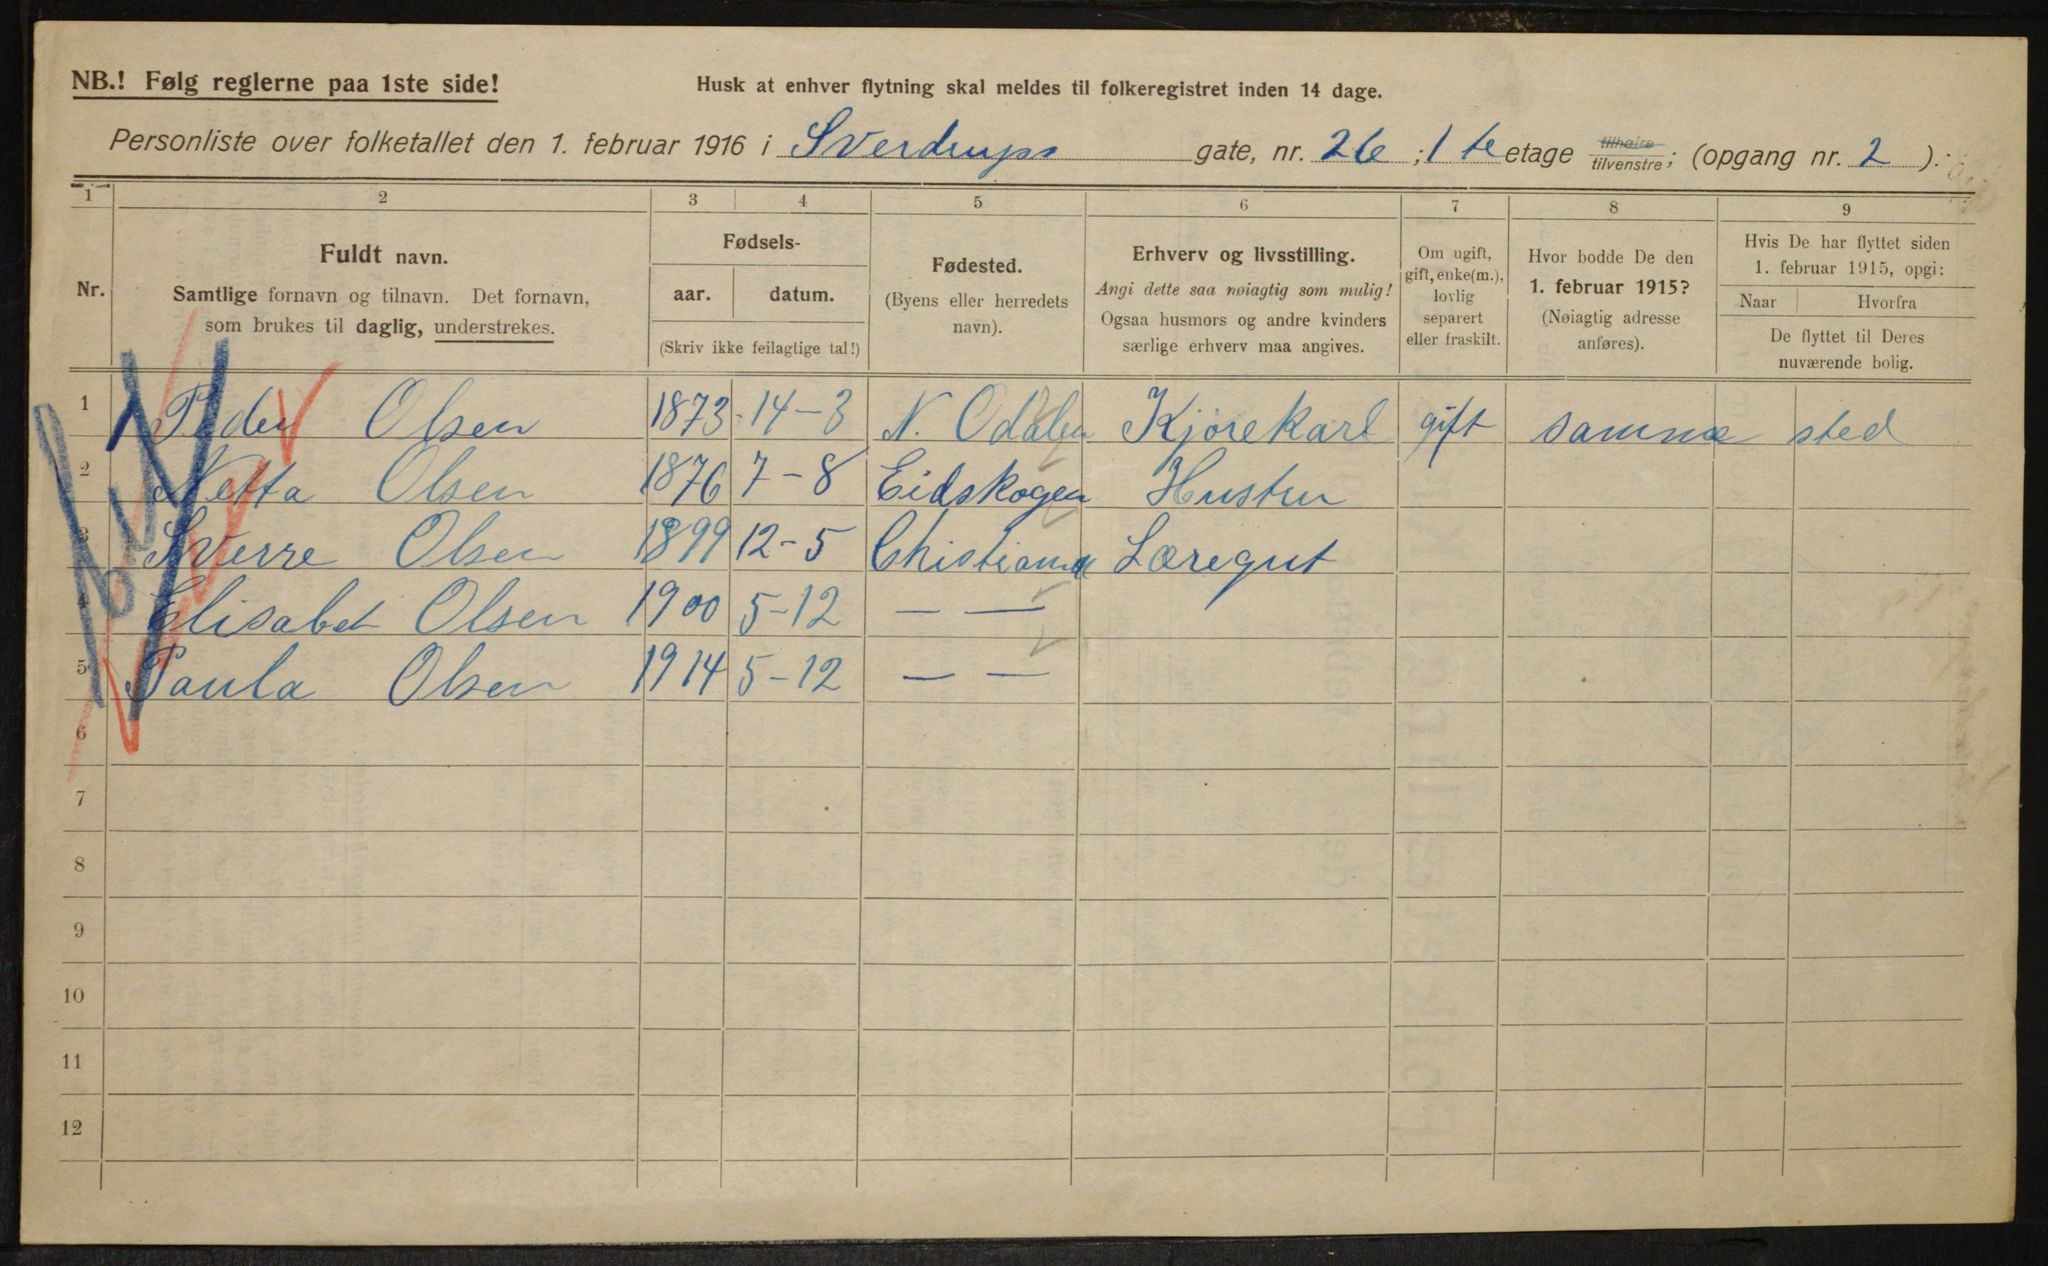 NB.! Følg reglerne paa 1ste side!
Husk at enhver flytning skal meldes til folkeregistret inden 14 dage.
Personliste over folketallet den 1. februar 1916 i Sverdrups gate, nr. 26 ; 1 te etage tilhøire tilvenstre; (opgang nr. 2 ).
1 2 3 4 5 6 7 8 9
Nr.
Fuldt navn.
Samtlige fornavn og tilnavn. Det fornavn,
som brukes til daglig, understrekes.
Fødsels-
aar. datum.
(Skriv ikke feilagtige tal!)
Fødested.
(Byens eller herredets
navn).
Erhverv og livsstilling.
Angi dette saa nøiagtig som mulig!
Ogsaa husmors og andre kvinders
særlige erhverv maa angives.
Om ugift,
gift, enke(m.),
lovlig
separert
eller fraskilt.
Hvor bodde De den
1. februar 1915?
(Nøiagtig adresse
anføres).
Hvis De har flyttet siden
1. februar 1915, opgi:
Naar Hvorfra
De flyttet til Deres
nuværende bolig.
1 Peder Olsen 1873 14-3 N. Odalen Kjørekarl gift samme sted
2 Netta Olsen 1876 7-8 Eidskogen Hustru
3 Sverre Olsen 1899 12-5 Christiania Læregut
4 Elisabet Olsen 1900 5-12 — —
5 Paula Olsen 1914 5-12 — —
6
7
8
9
10
11
12